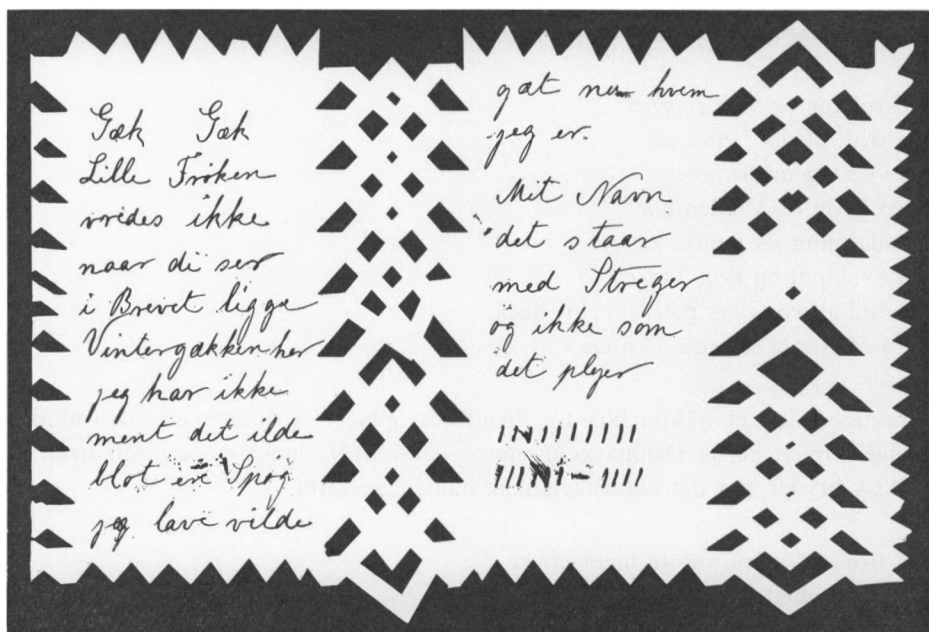 Gæk Gæk
Lille Frøken
vrides ikke
naar di ser
i Brevet ligge
Vintergækken her
jeg har ikke
ment det ilde
blot en Spøg
jeg lave vilde
gæt nu hvem
jeg er.
Met Navn
det staar
med Streger
og ikke som
det plejer